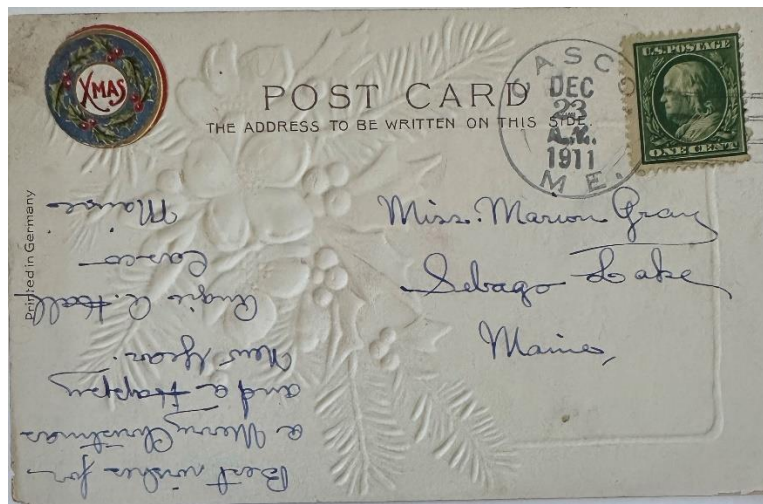 XMAS
POST CARD
THE ADDRESS TO BE WRITTEN ON THIS SIDE.
CASCO
DEC
23
A.M.
1911
ME.
U.S. POSTAGE
ONE CENT
Printed in Germany
Miss. Marion Gray
Sebago Lake
Maine,
Best wishes for
a Merry Christmas
and a Happy
New Year.
Angie A. Hall
Casco
Maine